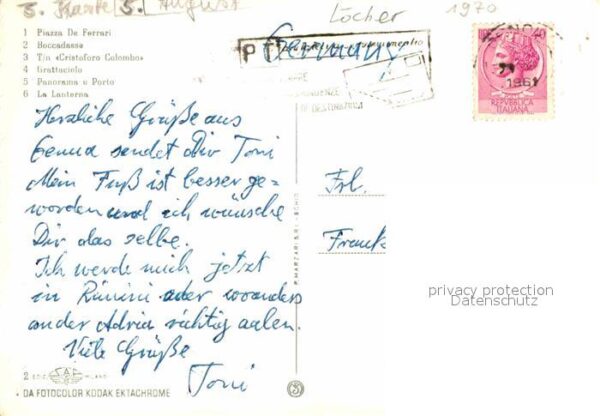 5. Karte 5. August
Locher
1970
1 Piazza De Ferrari
2 Boccadasse
3 T/n «Cristoforo Colombo»
4 Grattacielo
5 Panorama e Porto
6 La Lanterna
Germany
PT
1961
40
REPVBBLICA
ITALIANA
Herzliche Grüße aus
Genua sendet Dir Toni
Mein Fuß ist besser ge=
worden und ich wünsche
Dir das selbe.
Ich werde mich jetzt
in Rimini oder woanders
an der Adria richtig aalen.
Viele Grüße
Toni
Frl.
Frank
privacy protection
Datenschutz
2 EDIZ. SAF MILANO
DA FOTOCOLOR KODAK EKTACHROME